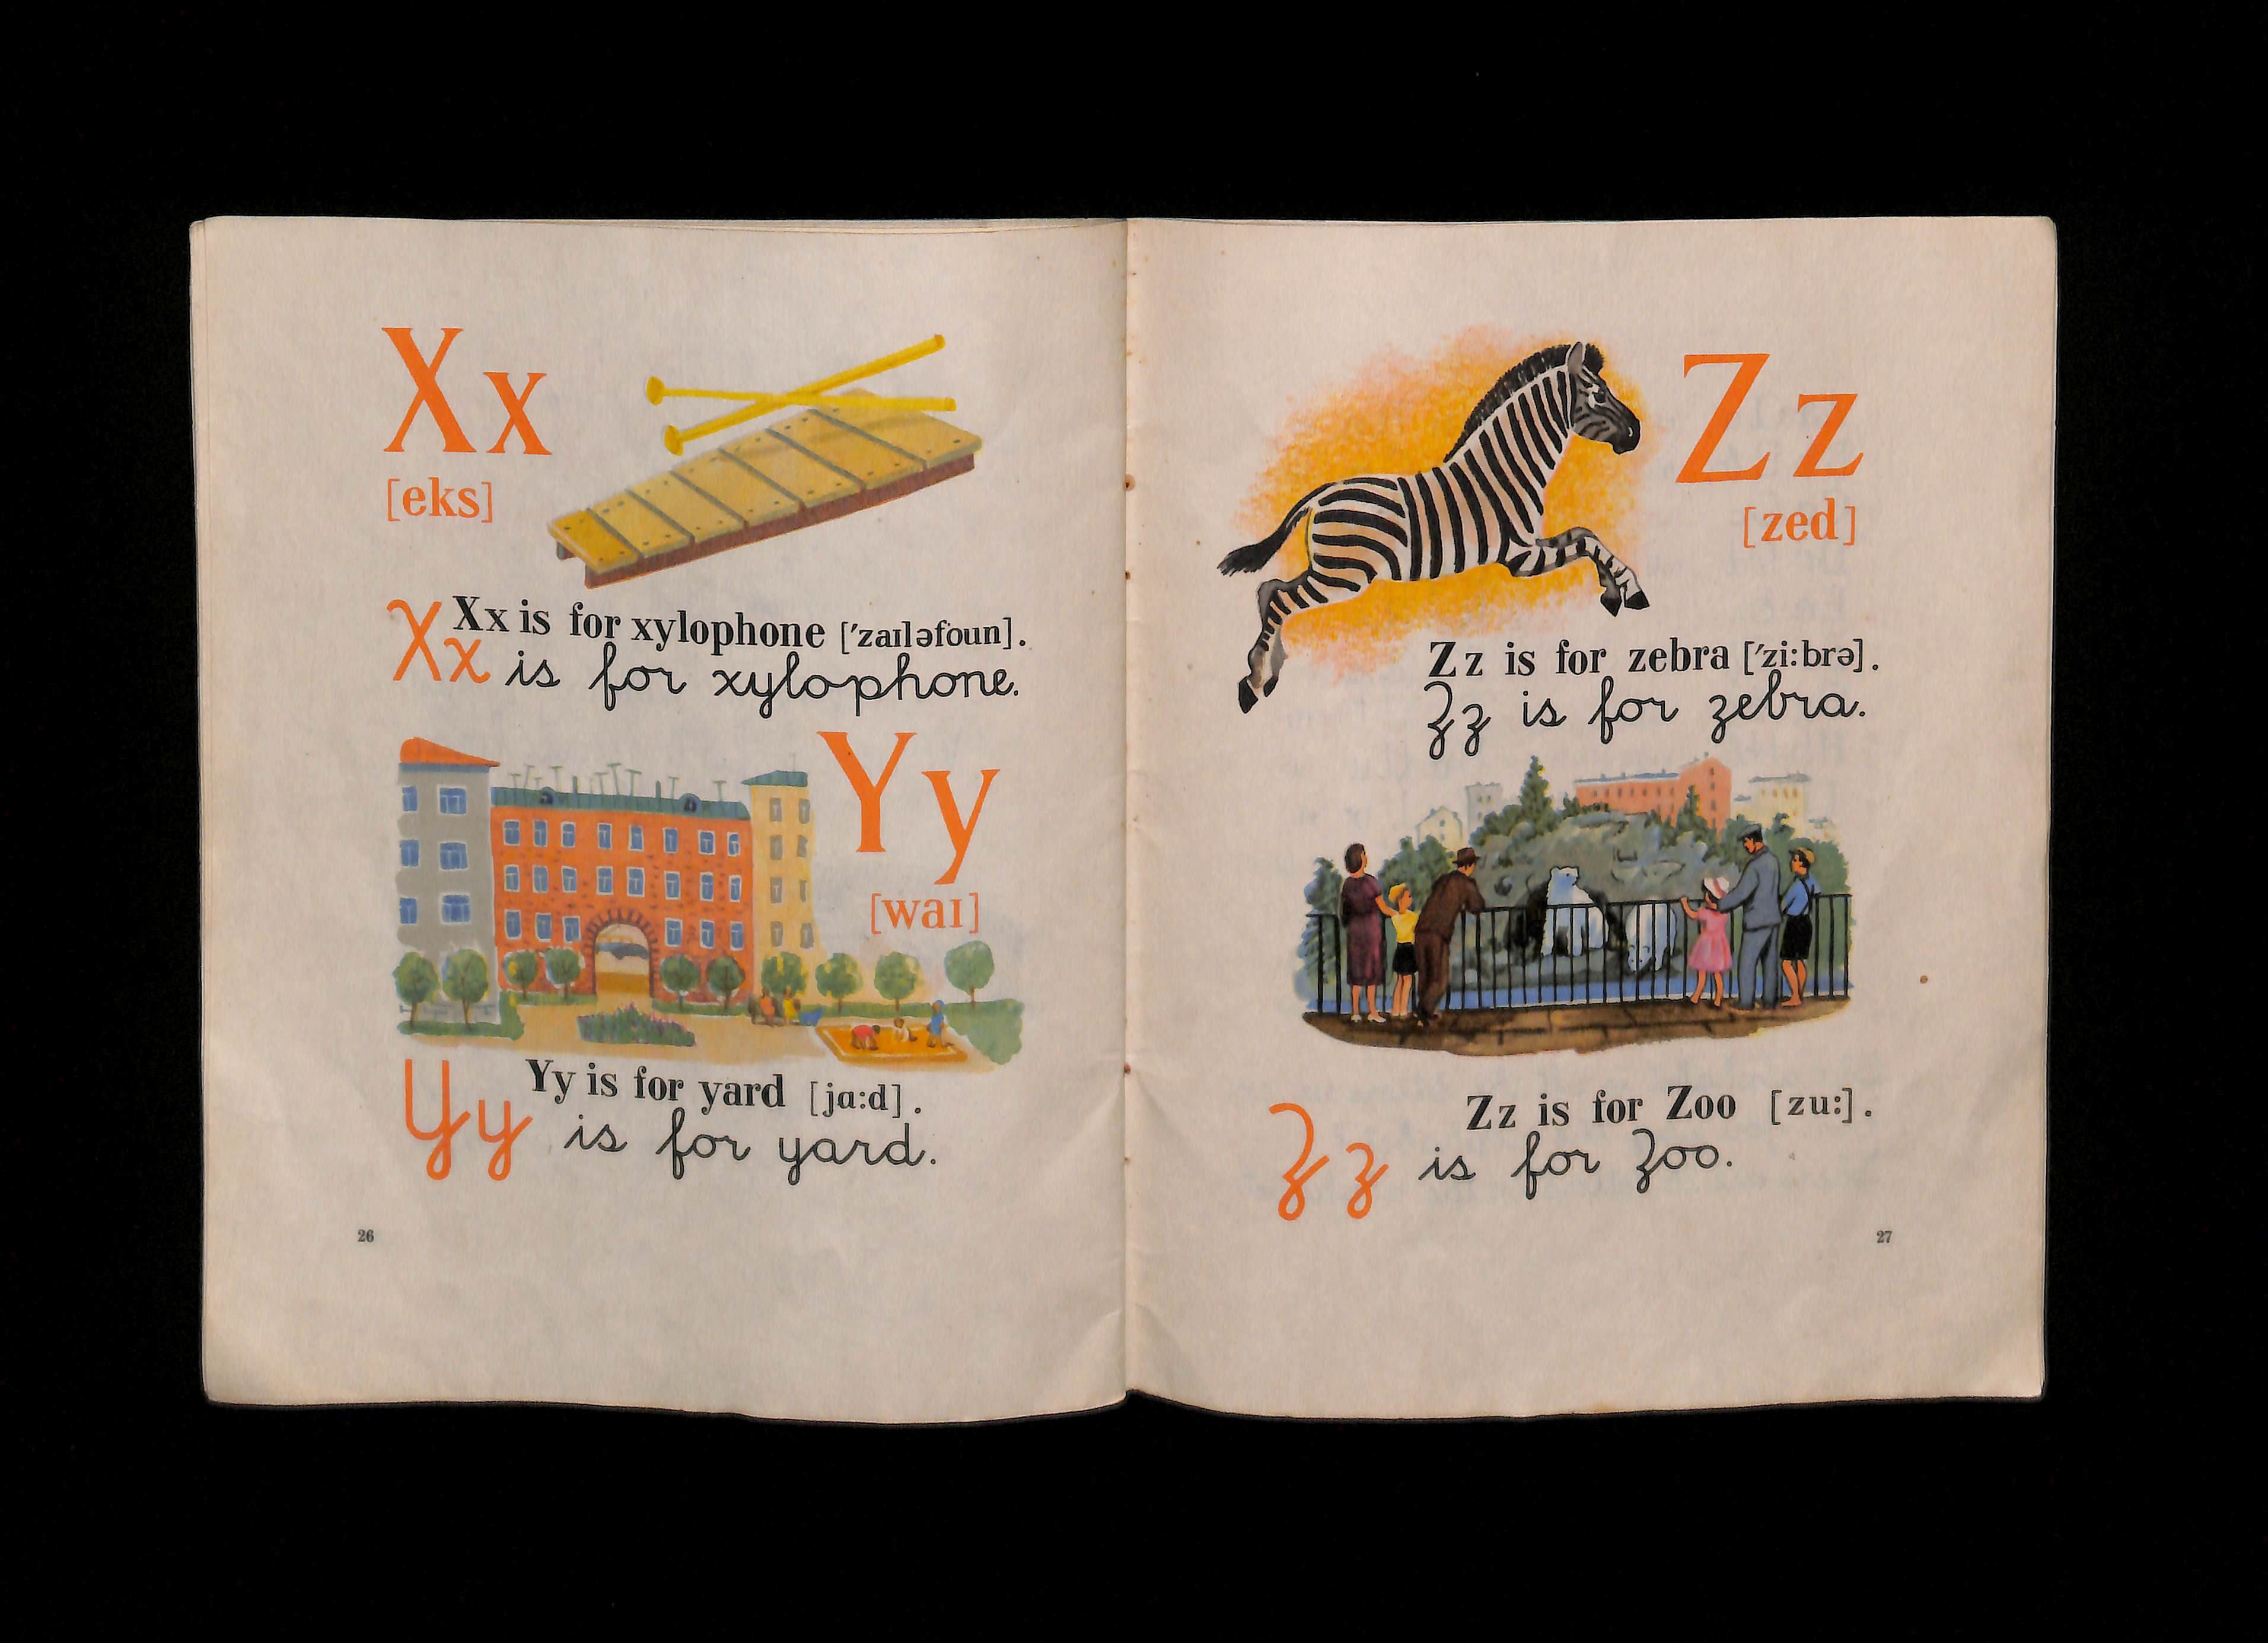 Xx
[eks]
Xx is for xylophone ['zaıləfoun].
Xx is for xylophone.
Yy
[waı]
Yy is for yard [ja:d].
Yy is for yard.
26
Zz
[zed]
Zz is for zebra ['zi:brə].
Zz is for zebra.
Zz is for Zoo [zu:].
Zz is for Zoo.
27